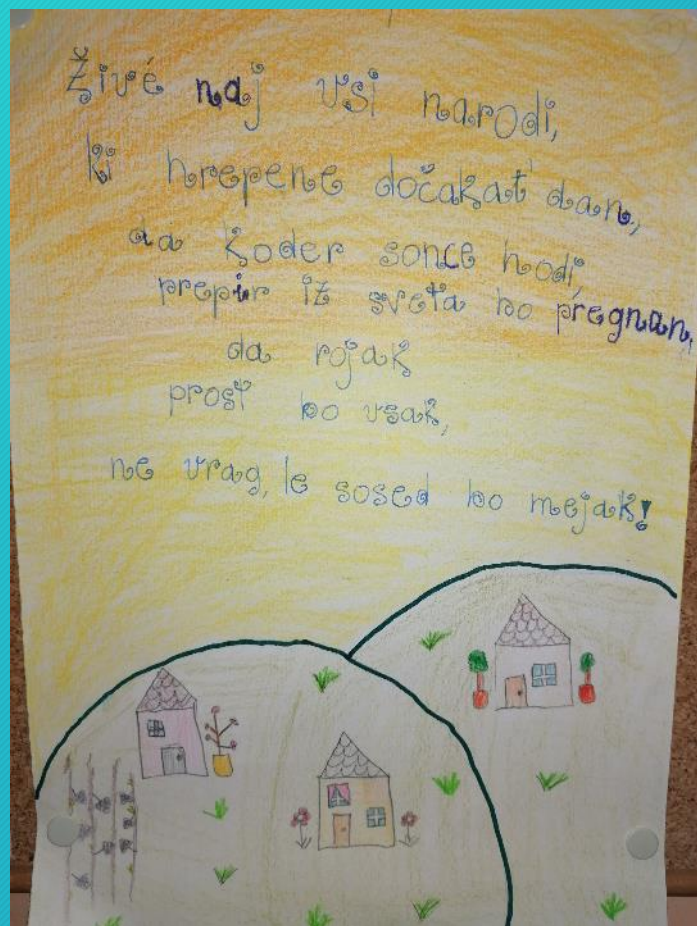 Živé naj vsi narodi,
ki hrepene dočakat' dan,
da koder sonce hodi,
prepir iz sveta bo pregnan,
da rojak
prost bo vsak,
ne vrag, le sosed bo mejak!